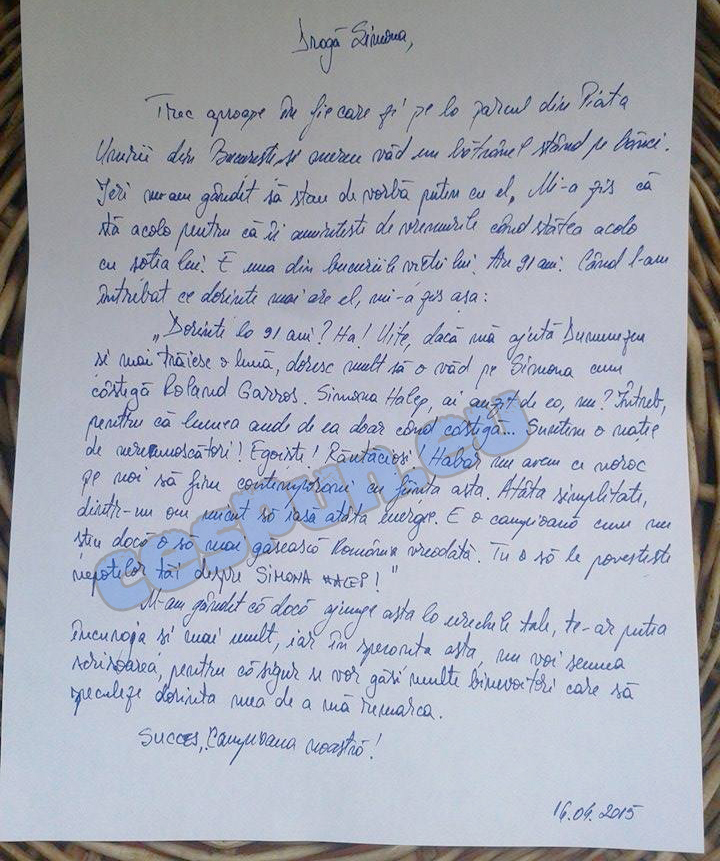 Dragă Simona,
Trec aproape în fiecare zi pe la parcul din Piata
Unirii din Bucuresti, si mereu văd un bătrânel stând pe bănci.
Ieri m-am gândit să stau de vorbă putin cu el. Mi-a zis că
stă acolo pentru că îi aminteste de vremurile când stătea acolo
cu sotia lui. E una din bucuriile vietii lui. Are 91 ani. Când l-am
întrebat ce dorinte mai are el, mi-a zis asa:
„Dorinte la 91 ani? Ha! Uite, dacă mă ajută Dumnezeu
si mai trăiesc o lună, doresc mult să o văd pe Simona cum
câstigă Roland Garros. Simona Halep, ai auzit de ea, nu? Întreb,
pentru că lumea aude de ea doar când câstigă... Suntem o natie
de nerecunoscători! Egoiste! Răutăciosi! Habar nu avem ce noroc
pe noi să fim contemporani cu fiinta asta. Atâta simplitate,
dintr-un om micut să iasă atâta energie. E o campioană cum nu
stiu dacă o să mai găsească România vreodată. Tu o să le povestesti
nepotilor tăi despre SIMONA HALEP!"
M-am gândit că dacă ajunge asta la urechile tale, te-ar putea
încuraja si mai mult, iar în speranta asta, nu voi semna
scrisoarea, pentru că sigur se vor găsi multe binevoitori care să
speculeze dorinta mea de a mă remarca.
Succes, Campioana noastră!
16.04.2015
cespun.eu